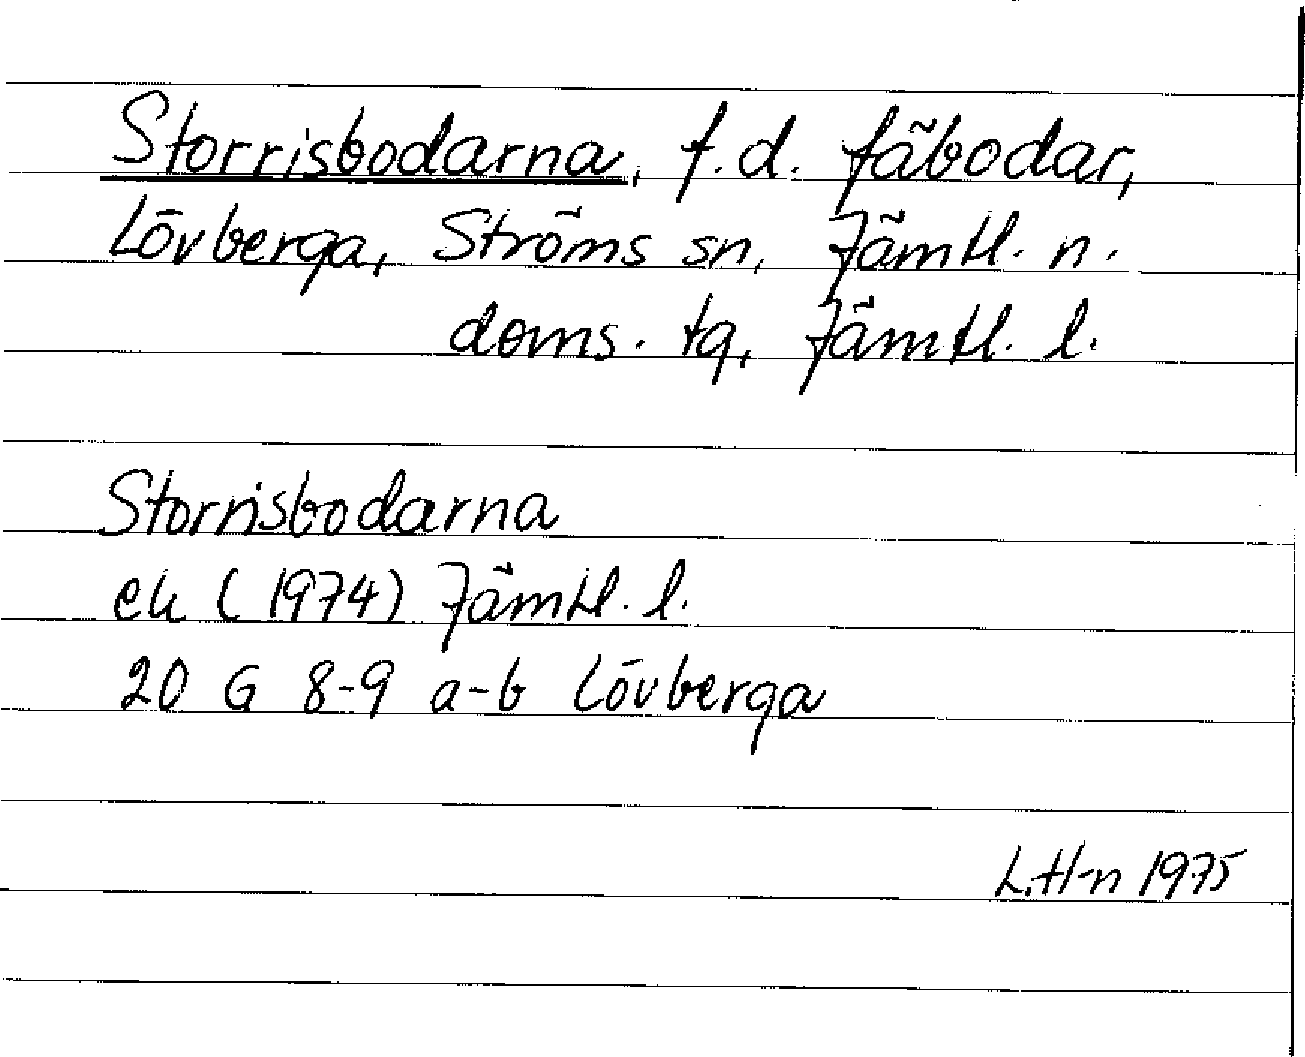 Storrisbodarna, f.d. fäbodar,
Lövberga, Ströms sn, Jämtl. n.
doms. tg, Jämtl. l.
Storrisbodarna
ek (1974) Jämtl. l.
20 G 8-9 a-b Lövberga
L.H-n 1975